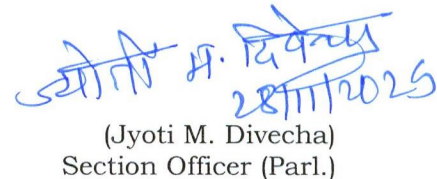 ज्योती म. दिवेचा
28/11/2025
(Jyoti M. Divecha)
Section Officer (Parl.)